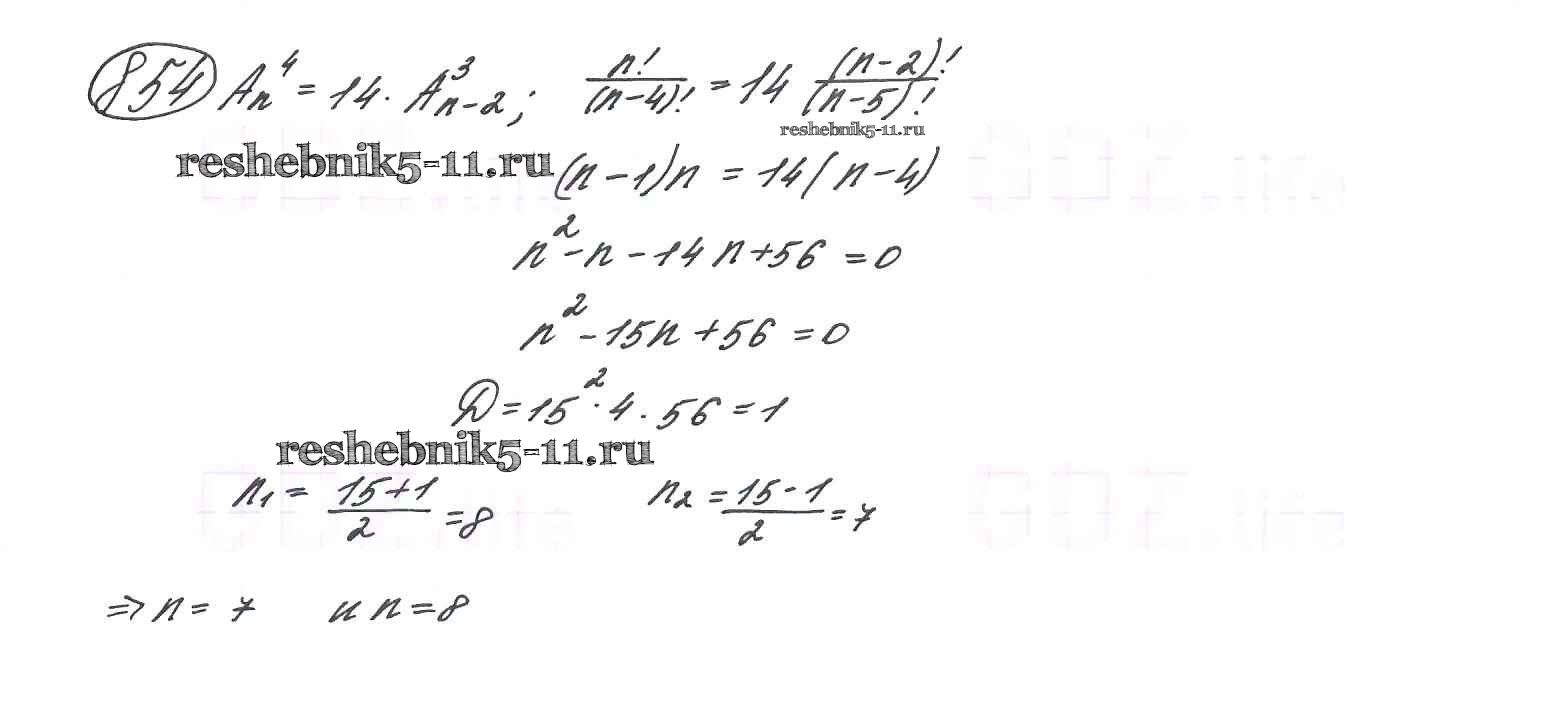 854 Aₙ⁴ = 14 · A³ₙ₋₂; n!/(n-4)! = 14 (n-2)!/(n-5)!
reshebnik5-11.ru
reshebnik5-11.ru (n-1)n = 14(n-4)
n² - n - 14n + 56 = 0
n² - 15n + 56 = 0
D = 15² · 4 · 56 = 1
reshebnik5-11.ru
n₁ = (15+1)/2 = 8 n₂ = (15-1)/2 = 7
⇒ n = 7 и n = 8